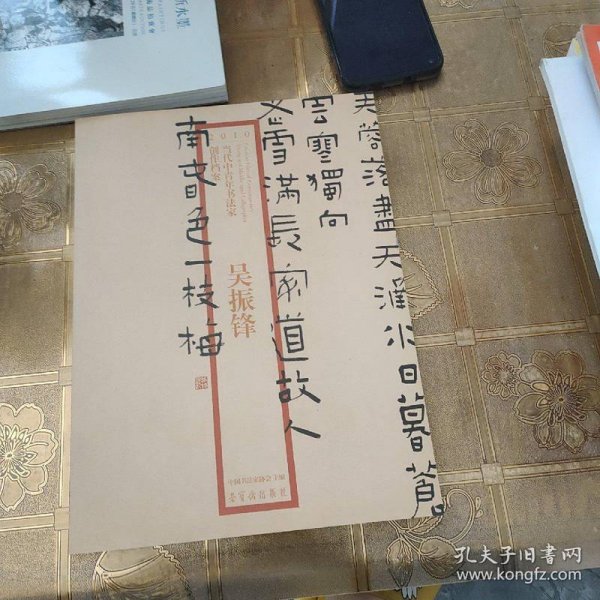 芙蓉落盡天涵水日暮蒼
云寒獨向
老雪滿長安道故人
南春色一枝梅
2010
当代中青年书法家
创作档案
吴振锋
中国书法家协会 主编
荣宝斋出版社
孔夫子旧书网
www.kongfz.com